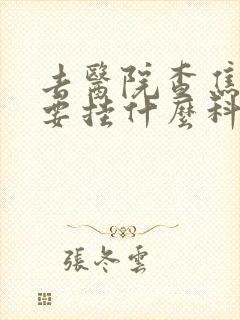 去醫院查焦
要挂什麼科
張冬雲